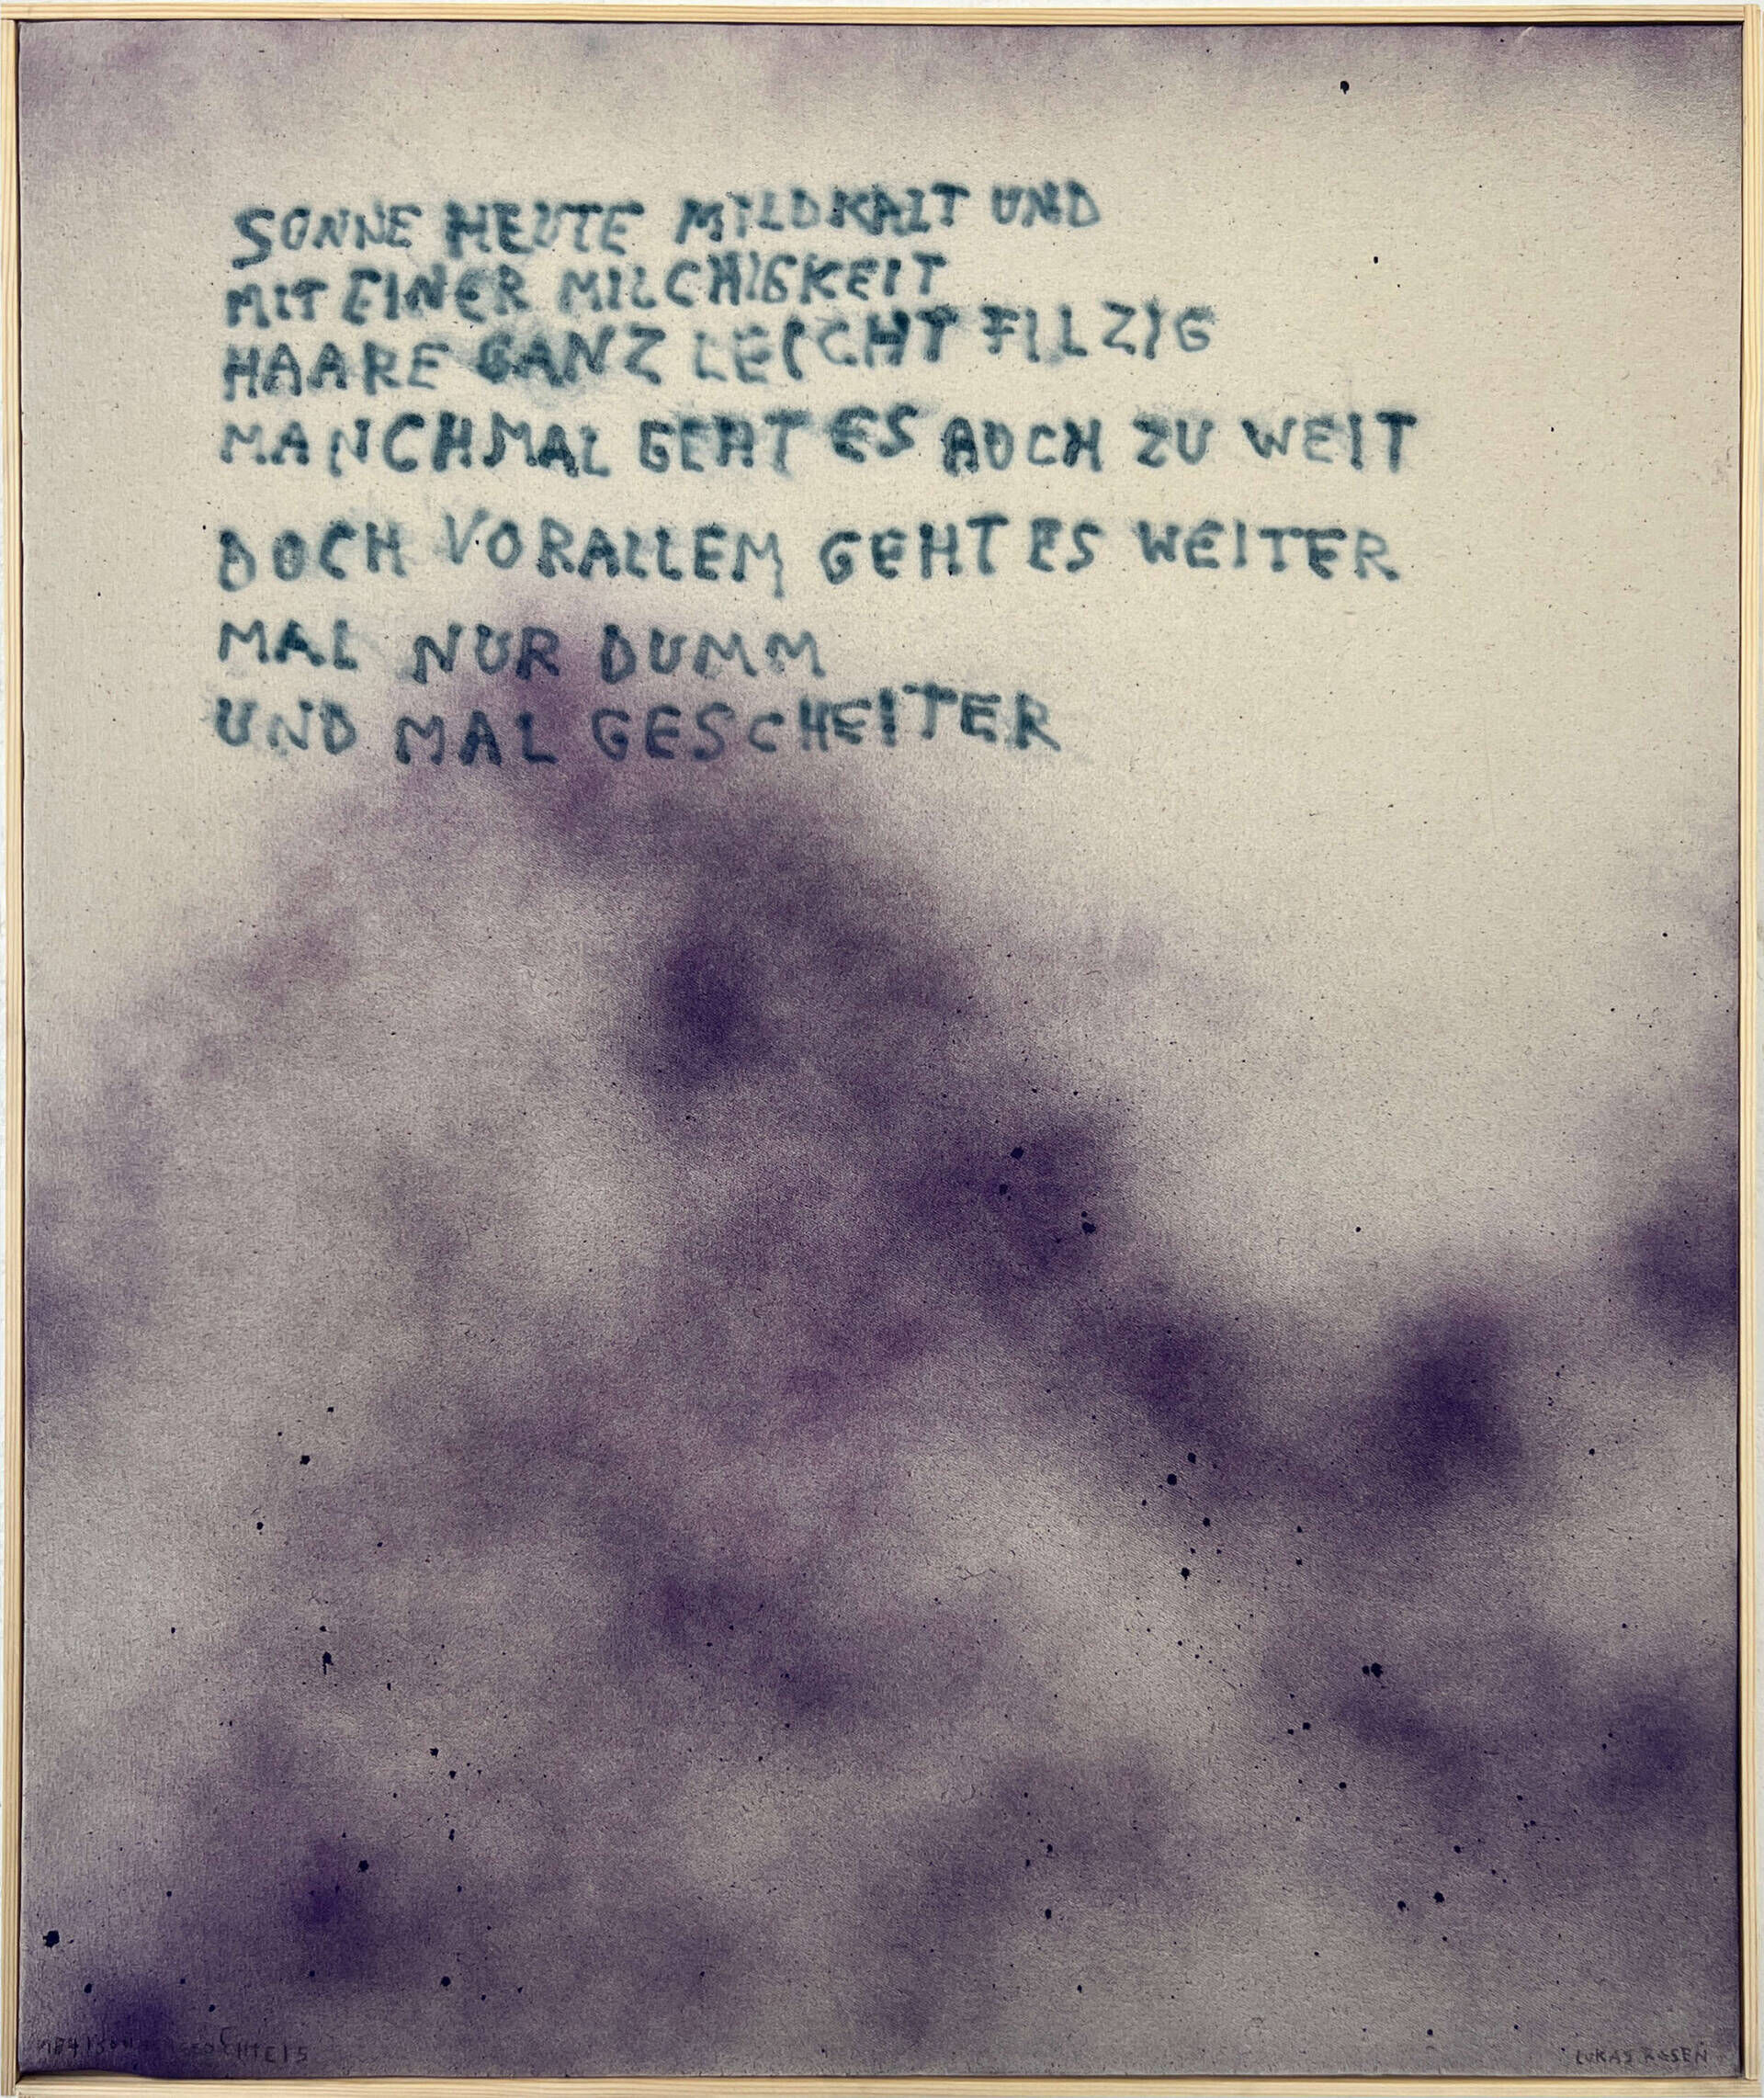 SONNE HEUTE MILDKALT UND
MIT EINER MILCHIGKEIT
HAARE GANZ LEICHT FILZIG
MANCHMAL GEHT ES AUCH ZU WEIT
DOCH VORALLEM GEHT ES WEITER
MAL NUR DUMM
UND MAL GESCHEITER
LUKAS ROSEN